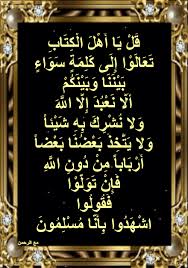 قُلْ يَا أَهْلَ الْكِتَابِ
تَعَالَوْا إِلَى كَلِمَةٍ سَوَاءٍ
بَيْنَنَا وَبَيْنَكُمْ
أَلَّا نَعْبُدَ إِلَّا اللَّهَ
وَلَا نُشْرِكَ بِهِ شَيْئاً
وَلَا يَتَّخِذَ بَعْضُنَا بَعْضاً
أَرْبَاباً مِنْ دُونِ اللَّهِ
فَإِنْ تَوَلَّوْا
فَقُولُوا
اشْهَدُوا بِأَنَّا مُسْلِمُونَ
مع الرحمن